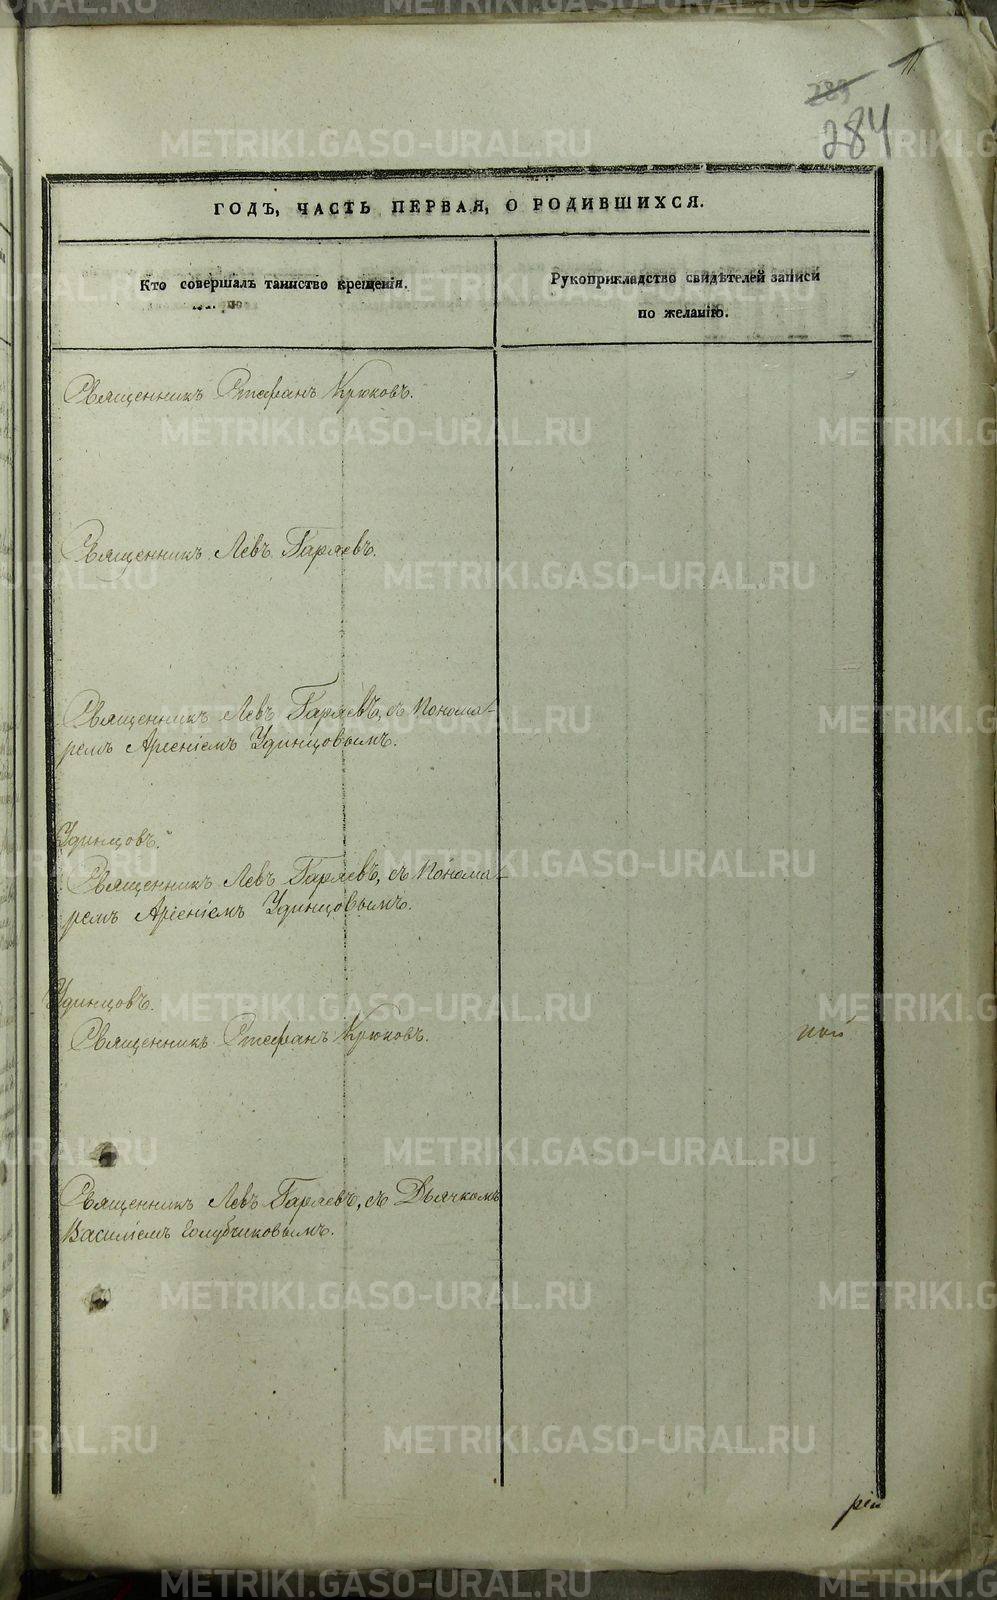 11
289
284
ГОДЪ, ЧАСТЬ ПЕРВАЯ, О РОДИВШИХСЯ.
Кто совершалъ таинство крещенія.
Рукоприкладство свидѣтелей записи
по желанію.
Священникъ Стефанъ Крюковъ.
Священникъ Левъ Гаряевъ.
Священникъ Левъ Гаряевъ, съ Понома-
ремъ Арсеніемъ Удинцовымъ.
Удинцовъ.
Священникъ Левъ Гаряевъ, съ Понома-
ремъ Арсеніемъ Удинцовымъ.
Удинцовъ.
Священникъ Стефанъ Крюковъ.
ной
Священникъ Левъ Гаряевъ, съ Дьячкомъ
Василіемъ Голубчиковымъ.
рій
METRIKI.GASO-URAL.RU